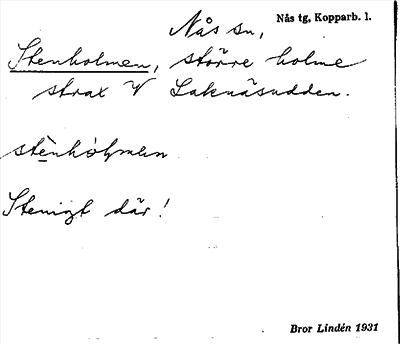 Nås sn,
Nås tg, Kopparb. l.
Stenholmen, större holme
strax V Laknäsudden.
stènhòɫmen
Stenigt där!
Bror Lindén 1931